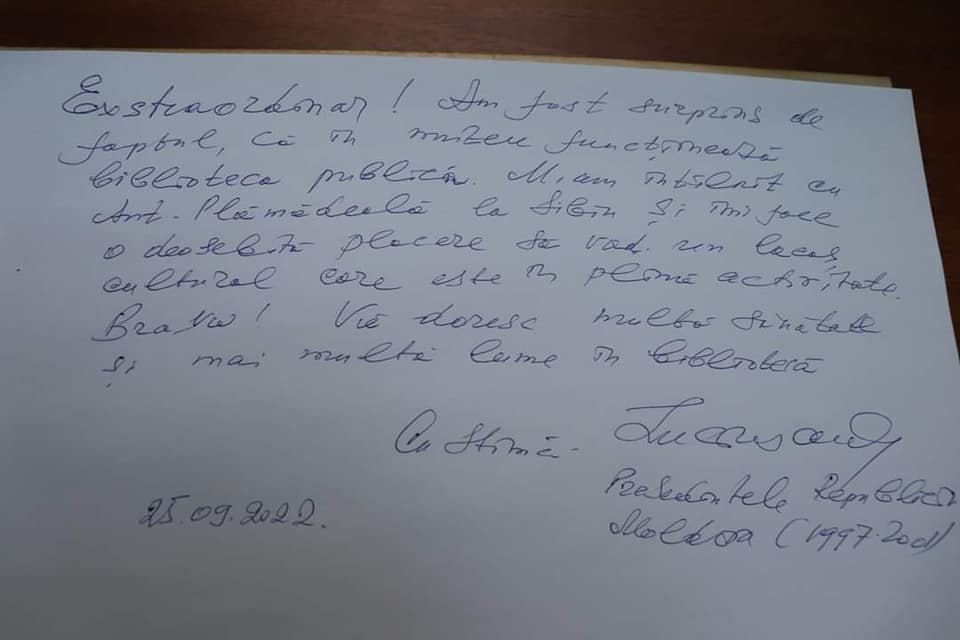 Exstraordinar! Am fost surprins de
faptul, că în muzeu funcționează
biblioteca publică. M-am întîlnit cu
Ant. Plămădeală la Sibiu și îmi face
o deosebită placere să văd un locaș
cultural care este în plină activitate.
Bravo! Vă doresc multă sănătate
și mai multă lume în bibliotecă
Cu stimă -
Președintele Republicii
Moldova (1997-2001)
25.09.2022.